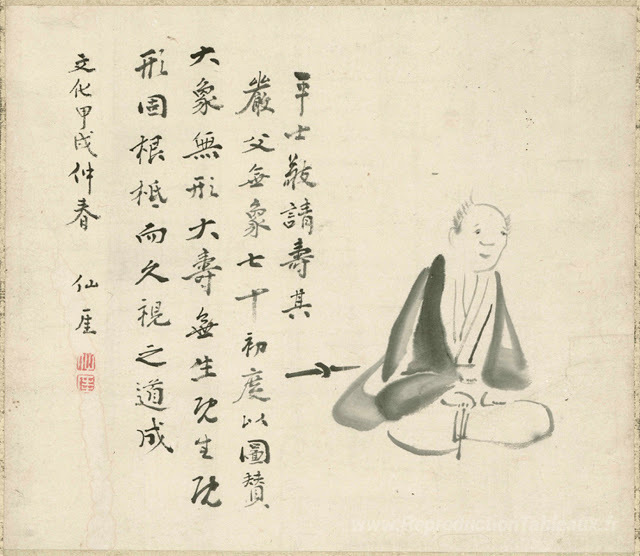 平士敬請壽其
嚴父無象七十初度以圖賛
大象無形大壽無生既生既
形固根柢而久視之道成
文化甲戌仲春
仙厓
仙厓
www.ReproductionTableaux.fr